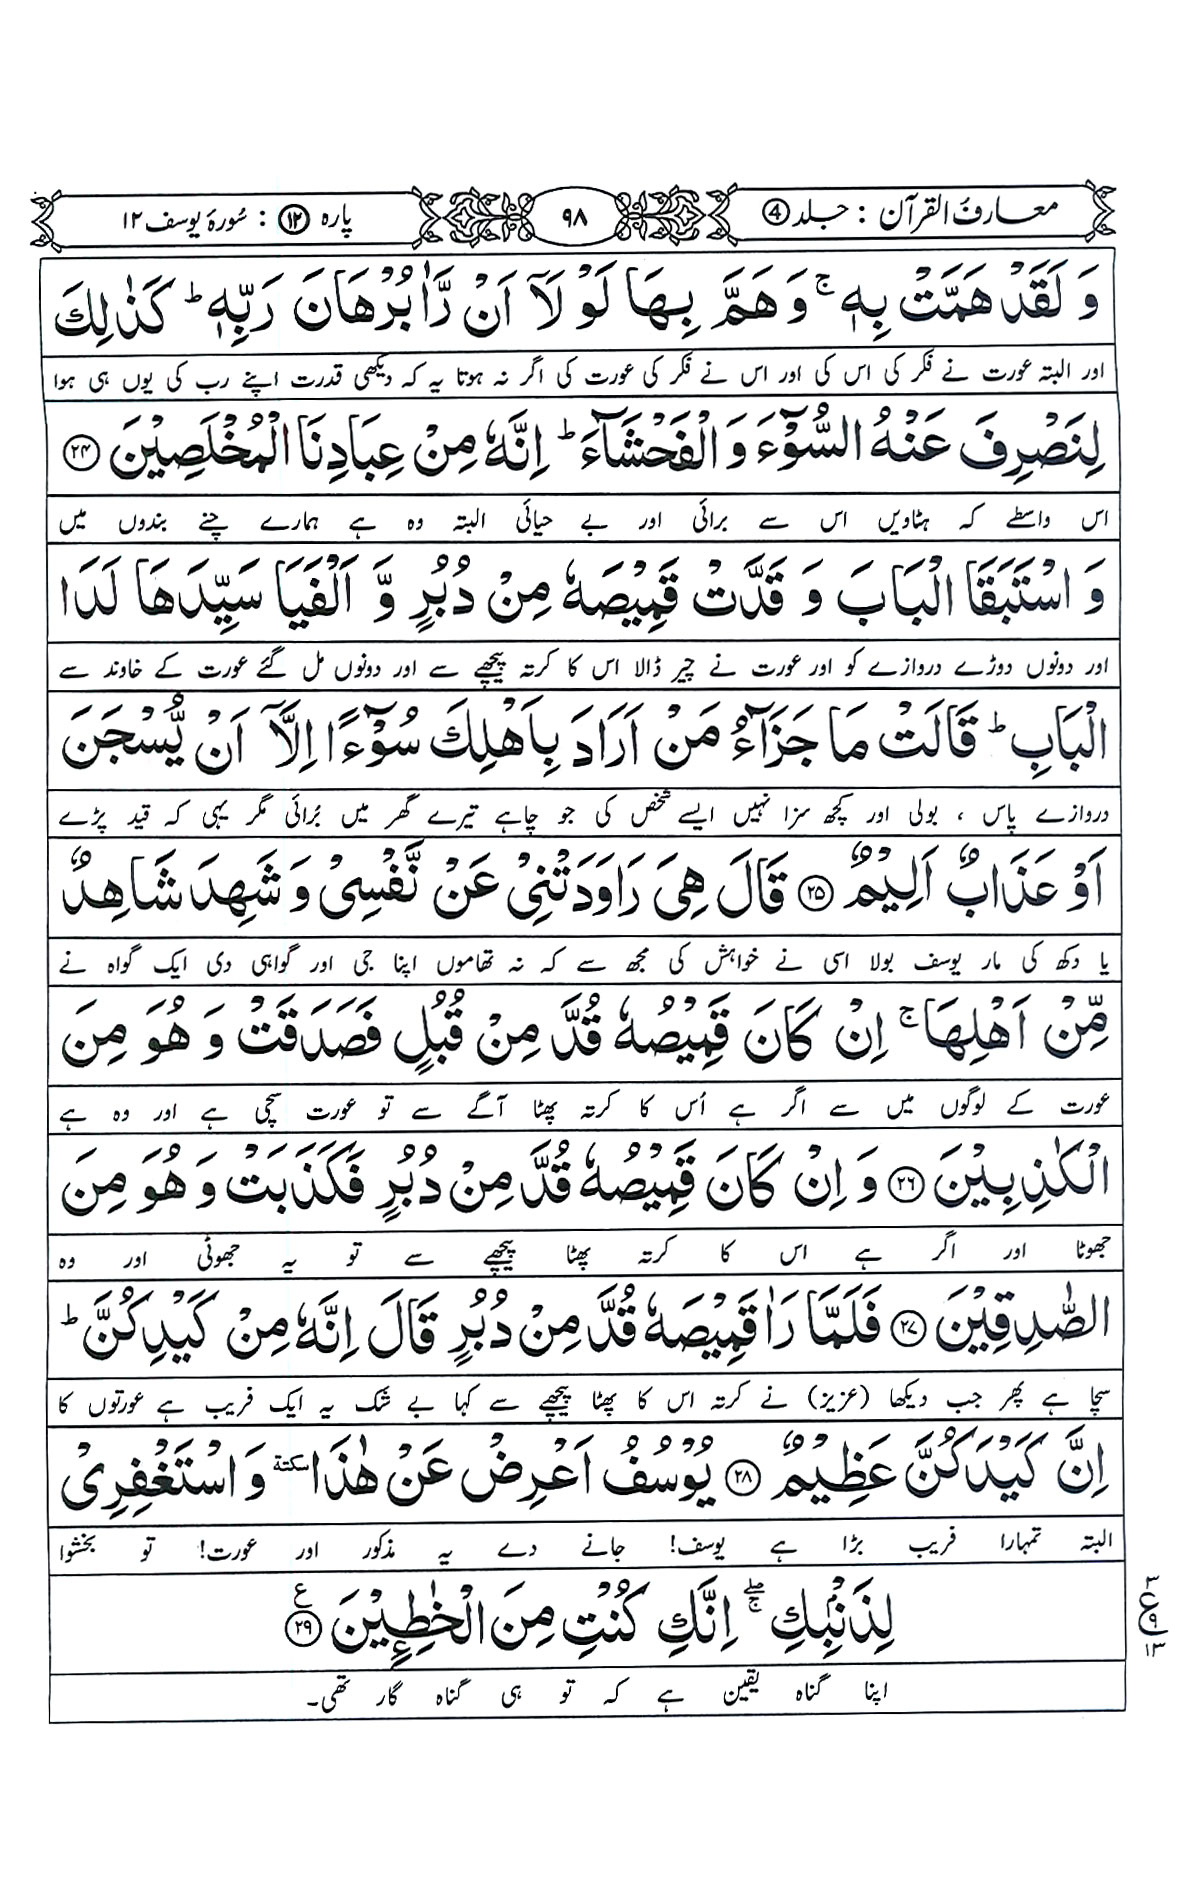 معارف القرآن : جلد ④
۹۸
پارہ ⑫ : سُورۂ یوسف ۱۲
وَ لَقَدْ هَمَّتْ بِهٖ ۚ وَ هَمَّ بِهَا لَوْ لَاۤ اَنْ رَّاٰ بُرْهَانَ رَبِّهٖ ؕ كَذٰلِكَ
اور البتہ عورت نے فکر کی اس کی اور اس نے فکر کی عورت کی اگر نہ ہوتا یہ کہ دیکھی قدرت اپنے رب کی یوں ہی ہوا
لِنَصْرِفَ عَنْهُ السُّوْٓءَ وَ الْفَحْشَآءَ ؕ اِنَّهٗ مِنْ عِبَادِنَا الْمُخْلَصِيْنَ ۝۲۴
اس واسطے کہ ہٹاویں اس سے برائی اور بے حیائی البتہ وہ ہے ہمارے چنے بندوں میں
وَ اسْتَبَقَا الْبَابَ وَ قَدَّتْ قَمِيْصَهٗ مِنْ دُبُرٍ وَّ اَلْفَيَا سَيِّدَهَا لَدَا
اور دونوں دوڑے دروازے کو اور عورت نے چیر ڈالا اس کا کرتہ پیچھے سے اور دونوں مل گئے عورت کے خاوند سے
الْبَابِ ؕ قَالَتْ مَا جَزَآءُ مَنْ اَرَادَ بِاَهْلِكَ سُوْٓءًا اِلَّاۤ اَنْ يُّسْجَنَ
دروازے پاس ، بولی اور کچھ سزا نہیں ایسے شخص کی جو چاہے تیرے گھر میں بُرائی مگر یہی کہ قید پڑے
اَوْ عَذَابٌ اَلِيْمٌ ۝۲۵ قَالَ هِيَ رَاوَدَتْنِيْ عَنْ نَّفْسِيْ وَ شَهِدَ شَاهِدٌ
یا دکھ کی مار یوسف بولا اسی نے خواہش کی مجھ سے کہ نہ تھاموں اپنا جی اور گواہی دی ایک گواہ نے
مِّنْ اَهْلِهَا ۚ اِنْ كَانَ قَمِيْصُهٗ قُدَّ مِنْ قُبُلٍ فَصَدَقَتْ وَ هُوَ مِنَ
عورت کے لوگوں میں سے اگر ہے اُس کا کرتہ پھٹا آگے سے تو عورت سچی ہے اور وہ ہے
الْكٰذِبِيْنَ ۝۲۶ وَ اِنْ كَانَ قَمِيْصُهٗ قُدَّ مِنْ دُبُرٍ فَكَذَبَتْ وَ هُوَ مِنَ
جھوٹا اور اگر ہے اس کا کرتہ پھٹا پیچھے سے تو یہ جھوٹی اور وہ
الصّٰدِقِيْنَ ۝۲۷ فَلَمَّا رَاٰ قَمِيْصَهٗ قُدَّ مِنْ دُبُرٍ قَالَ اِنَّهٗ مِنْ كَيْدِكُنَّ ؕ
سچا ہے پھر جب دیکھا (عزیز) نے کرتہ اس کا پھٹا پیچھے سے کہا بے شک یہ ایک فریب ہے عورتوں کا
اِنَّ كَيْدَكُنَّ عَظِيْمٌ ۝۲۸ يُوْسُفُ اَعْرِضْ عَنْ هٰذَا سكتة وَ اسْتَغْفِرِيْ
البتہ تمہارا فریب بڑا ہے یوسف! جانے دے یہ مذکور اور عورت! تو بخشوا
لِذَنْۢبِكِ ۖۚ اِنَّكِ كُنْتِ مِنَ الْخٰطِـِٕيْنَ ۝۲۹ ع
۳ ع ۹ ۱۳
اپنا گناہ یقین ہے کہ تو ہی گناہ گار تھی۔